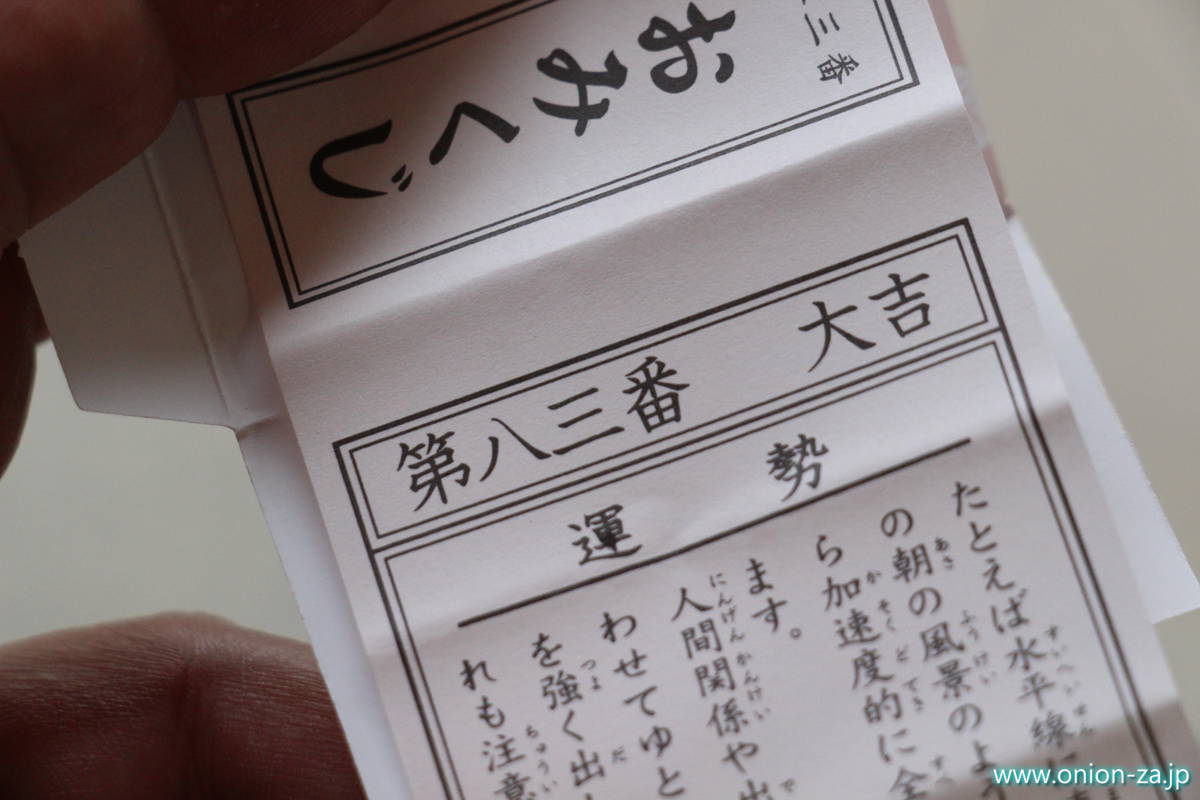 三番
おみくじ
第八三番 大吉
運勢
たとえば水平線に
の朝の風景のよ
ら加速度的に全
ます。
人間関係や出
わせてゆと
を強く出
れも注意
www.onion-za.jp